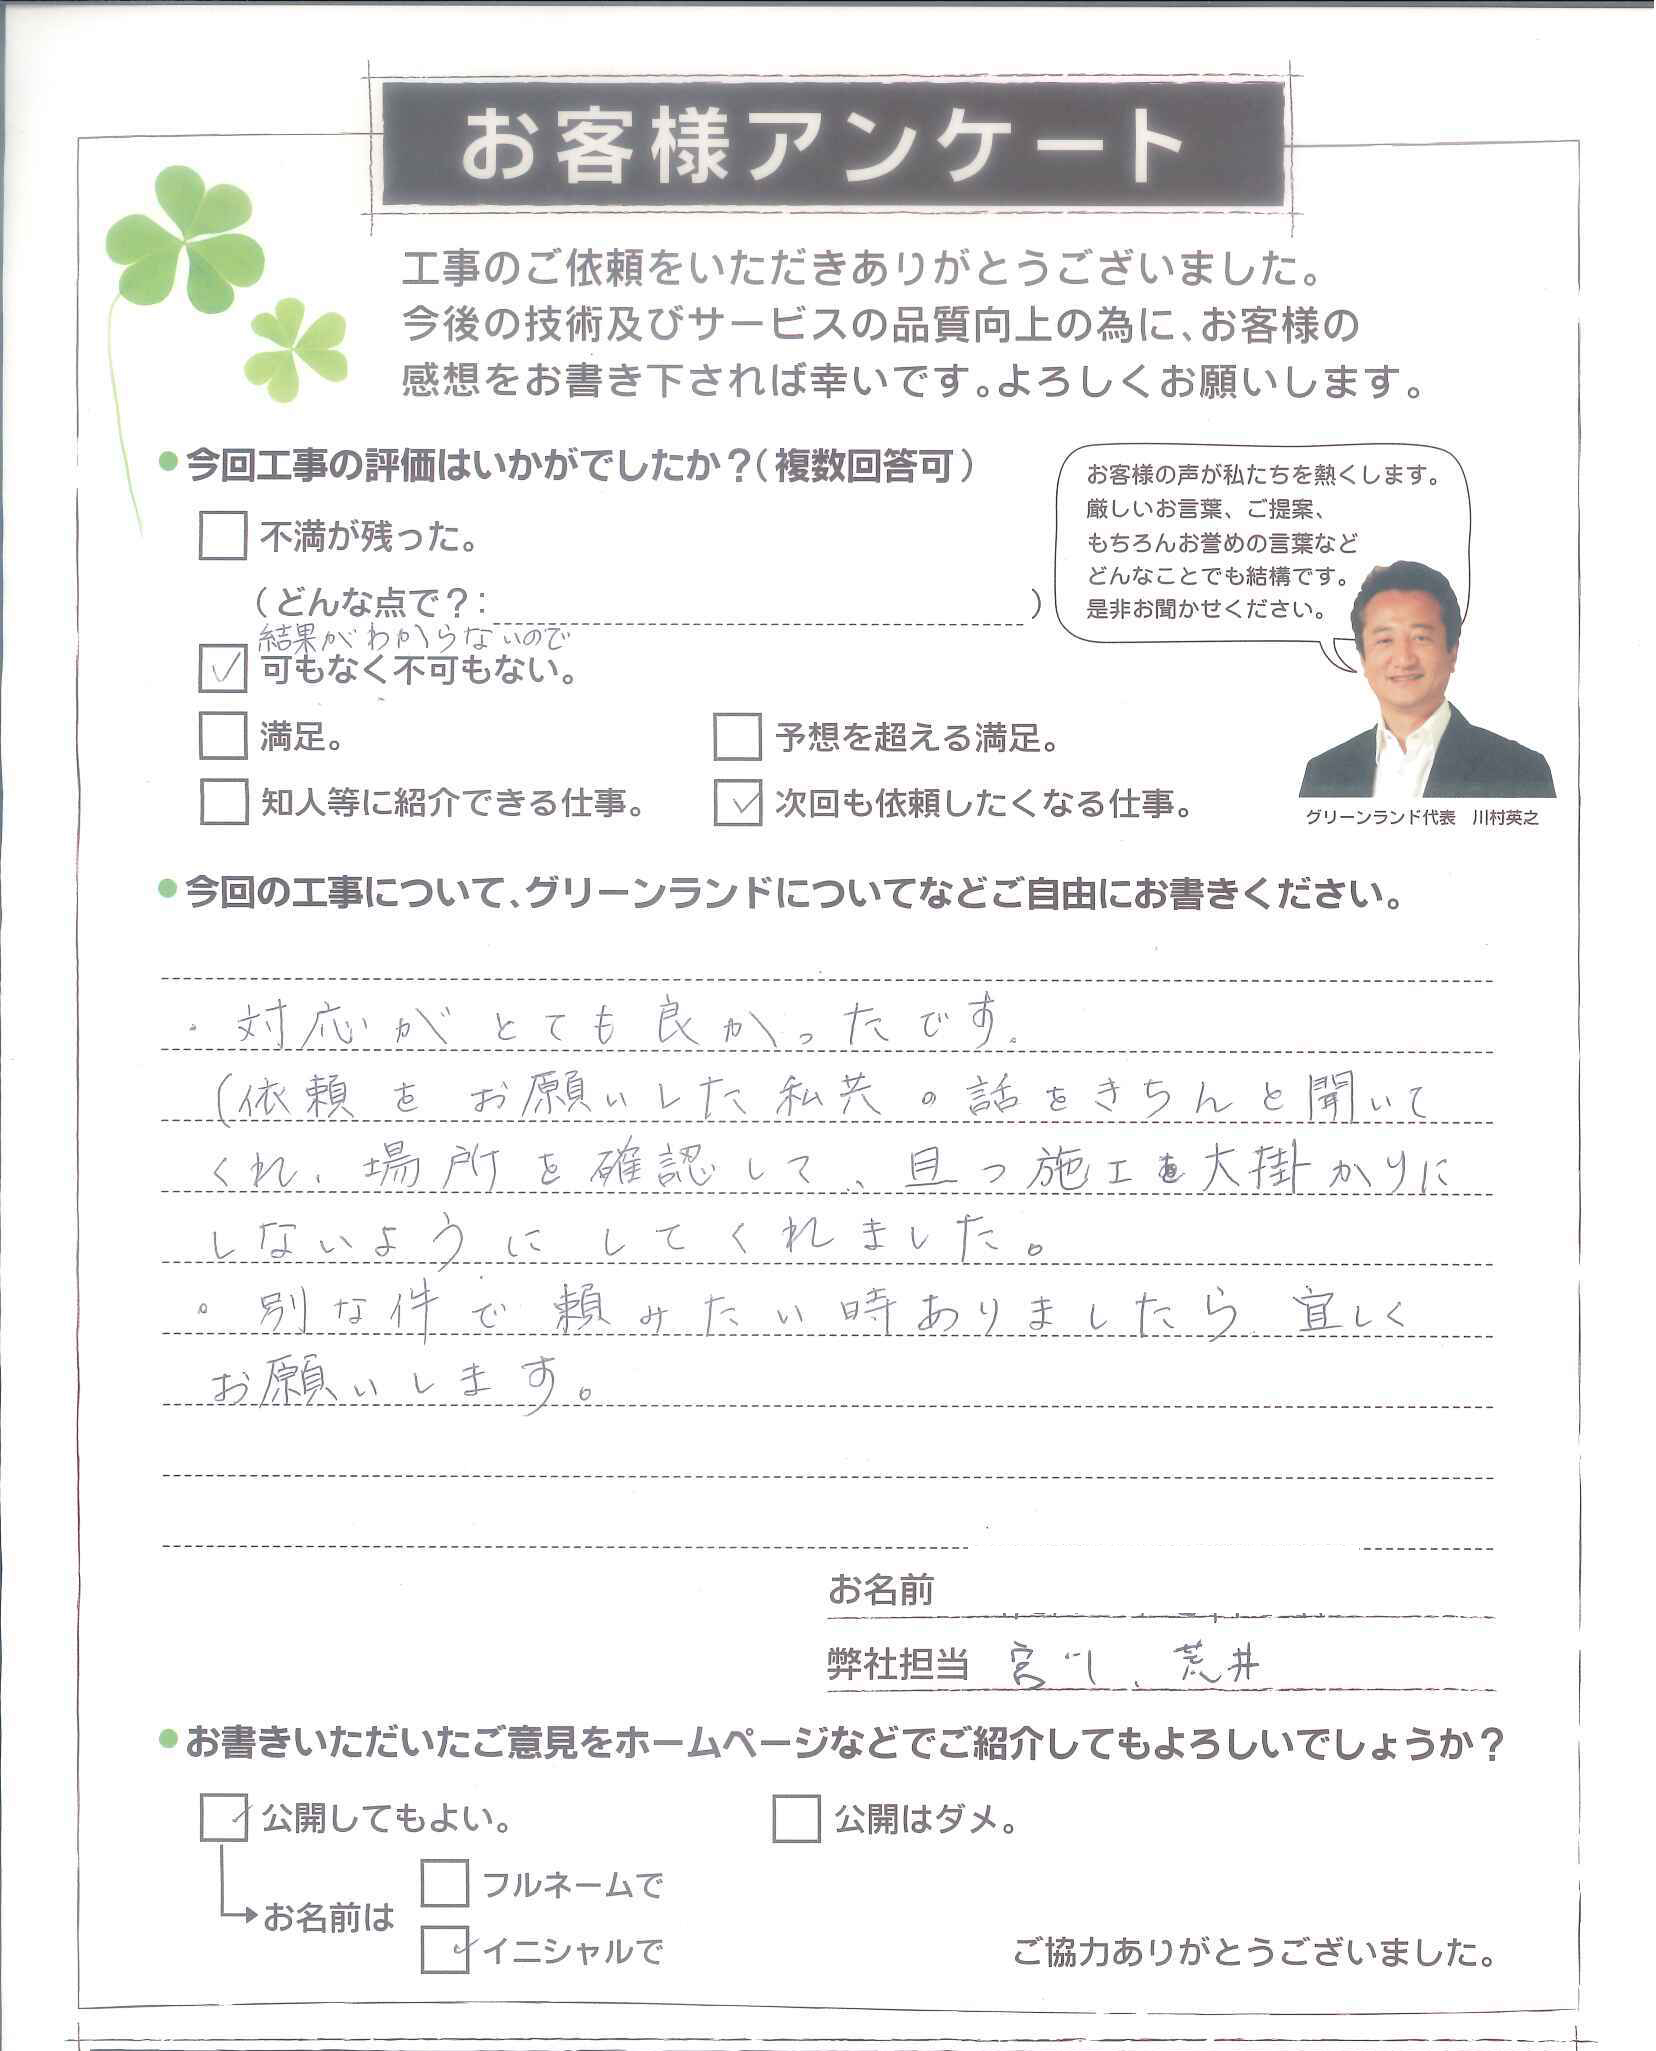 お客様アンケート
工事のご依頼をいただきありがとうございました。
今後の技術及びサービスの品質向上の為に、お客様の
感想をお書き下されば幸いです。よろしくお願いします。
今回工事の評価はいかがでしたか？（複数回答可）
お客様の声が私たちを熱くします。
厳しいお言葉、ご提案、
もちろんお誉めの言葉など
どんなことでも結構です。
是非お聞かせください。
グリーンランド代表　川村英之
不満が残った。
（どんな点で？：　）
結果がわからないので
✓ 可もなく不可もない。
満足。
予想を超える満足。
知人等に紹介できる仕事。
✓ 次回も依頼したくなる仕事。
今回の工事について、グリーンランドについてなどご自由にお書きください。
・対応がとても良かったです。
（依頼をお願いした私共の話をきちんと聞いて
くれ、場所を確認して、且つ施工を大掛かりに
しないようにしてくれました。
・別な件で頼みたい時ありましたら宜しく
お願いします。
お名前
弊社担当 宮川、荒井
お書きいただいたご意見をホームページなどでご紹介してもよろしいでしょうか？
✓ 公開してもよい。
公開はダメ。
お名前は
フルネームで
✓ イニシャルで
ご協力ありがとうございました。